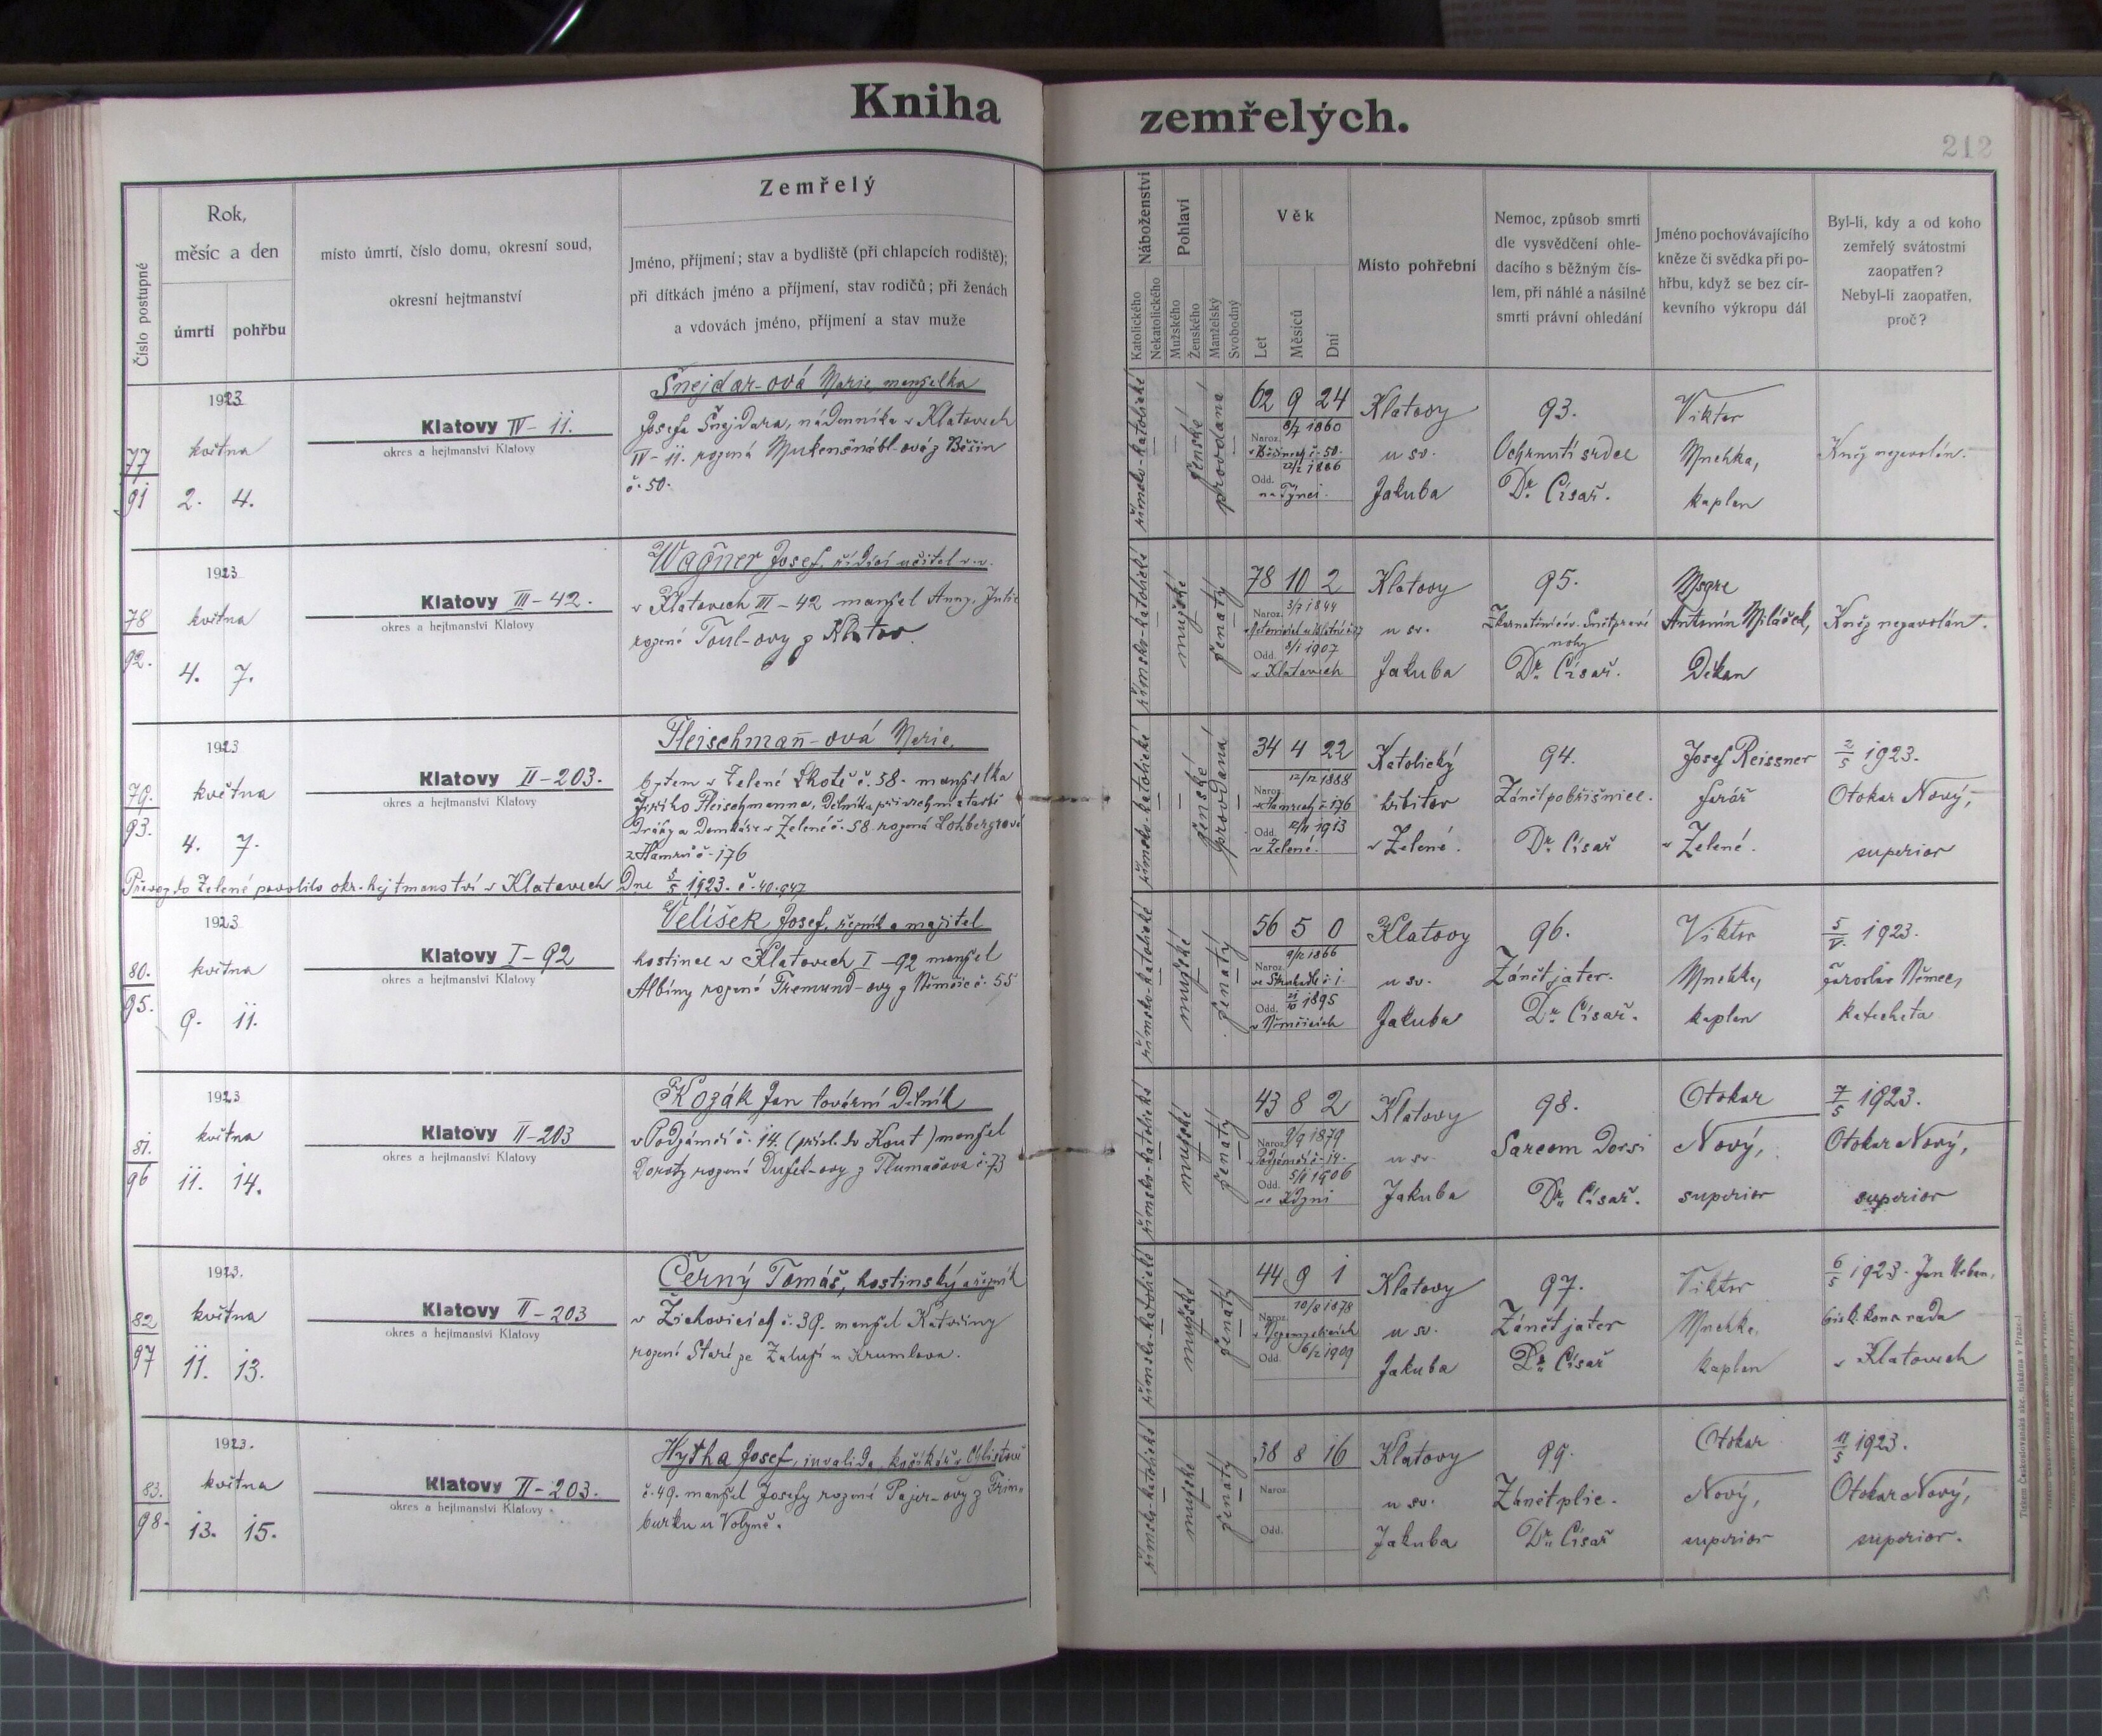 Kniha zemřelých.
212
Číslo postupné
Rok,
měsíc a den
úmrtí pohřbu
místo úmrtí, číslo domu, okresní soud,
okresní hejtmanství
Zemřelý
Jméno, příjmení; stav a bydliště (při chlapcích rodiště);
při dítkách jméno a příjmení, stav rodičů; při ženách
a vdovách jméno, příjmení a stav muže
Náboženství
Katolického
Nekatolického
Pohlaví
Mužského
Ženského
Manželský
Svobodný
Věk
Let
Měsíců
Dní
Místo pohřební
Nemoc, způsob smrti
dle vysvědčení ohle-
dacího s běžným čís-
lem, při náhlé a násilné
smrti právní ohledání
Jméno pochovávajícího
kněze či svědka při po-
hřbu, když se bez cír-
kevního výkropu dál
Byl-li, kdy a od koho
zemřelý svátostmi
zaopatřen?
Nebyl-li zaopatřen,
proč?
77
91
1923
května
2. 4.
Klatovy IV - 11.
okres a hejtmanství Klatovy
Šnejdar-ová Marie, manželka
Josefa Šnejdara, nádenníka v Klatovech
IV - 11. rozená
č. 50.
římsko-katolické
ženské
provdaná
62 9 24
Naroz. 8/7 1860
č. 50.
Odd. 1886
na Týnci.
Klatovy
u sv.
Jakuba
93.
Ochrnutí srdce
Dr. Císař.
Viktor
Mnehka,
kaplan
Kněz nepovolán.
78
92.
1923
května
4. 7.
Klatovy III - 42.
okres a hejtmanství Klatovy
Wagner Josef, řídící učitel v. v.
v Klatovech III - 42 manžel Anny, Julie
rozené Toul-ovy z Klatov.
římsko-katolické
mužské
ženatý
78 10 2
Naroz. 3/7 1844
Odd. 8/1 1907
v Klatovech
Klatovy
u sv.
Jakuba
95.
nohy
Dr. Císař.
Msgre
Antonín Miláček,
Děkan
Kněz nezavolán.
79.
93.
1923
května
4. 7.
Klatovy II - 203.
okres a hejtmanství Klatovy
Fleischmann-ová Marie,
bytem v Zelené Lhotě č. 58. manželka
Jiřího Fleischmanna, dělníka při vrchní stavbě
Dráhy a Domkáře v Zelené č. 58. rozená Lohbergrová
z Hamrů č. 176
Převoz do Zelené povolilo okr. hejtmanství v Klatovech Dne 5/5 1923. č. 40.947
římsko-katolické
ženské
provdaná
34 4 22
Naroz. 12/12 1888
v Hamrech č. 176
Odd. 12/11 1913
v Zelené.
Katolický
hřbitov
v Zelené.
94.
Zánět pobřišnice.
Dr. Císař
Josef Reissner
farář
v Zelené.
2/5 1923.
Otokar Nový,
superior
80.
95.
1923
května
9. 11.
Klatovy I - 92
okres a hejtmanství Klatovy
Velíšek Josef, řezník a majitel
hostince v Klatovech I - 92 manžel
Albíny rozené Tremund-ovy z Němčic č. 55
římsko-katolické
mužské
ženatý
56 5 0
Naroz. 9/12 1866
č. 1.
Odd. 21/10 1895
v Němčicích
Klatovy
u sv.
Jakuba
96.
Zánět jater.
Dr. Císař.
Viktor
Mnehka,
kaplan
5/V. 1923.
Jaroslav Němec,
katecheta
81.
96
1923
května
11. 14.
Klatovy II - 203
okres a hejtmanství Klatovy
Kozák Jan tovární Dělník
v Podzámčí č. 14. (přísl. do Kout) manžel
Doroty rozené Dufet-ovy z Tlumačova č. 73
římsko-katolické
mužské
ženatý
43 8 2
Naroz. 9/9 1879
Podzámčí č. 14.
Odd. 5/11 1906
ve Kdyni
Klatovy
u sv.
Jakuba
98.
Sarcom Dorsi
Dr. Císař.
Otokar
Nový,
superior
7/5 1923.
Otokar Nový,
superior
82
97
1923.
května
11. 13.
Klatovy II - 203
okres a hejtmanství Klatovy
Černý Tomáš, hostinský a řezník
v Žichovicích č. 39. manžel Kateřiny
rozené Staré ze Zaluží u Krumlova.
římsko-katolické
mužské
ženatý
44 9 1
Naroz. 10/8 1878
Odd. 16/2 1909
Klatovy
u sv.
Jakuba
97.
Zánět jater
Dr. Císař
Viktor
Mnehka,
kaplan
6/5 1923. Jan Urban,
bisk. kons. rada
v Klatovech
83.
98.
1923.
května
13. 15.
Klatovy II - 203.
okres a hejtmanství Klatovy
Hytha Josef, invalida, košíkář v Chlístově
č. 49. manžel Josefy rozené Pajer-ovy z Frim-
burku u Volyně.
římsko-katolické
mužské
ženatý
38 8 16
Naroz.
Odd.
Klatovy
u sv.
Jakuba
99.
Zánět plic.
Dr. Císař
Otokar
Nový,
superior
11/5 1923.
Otokar Nový,
superior.